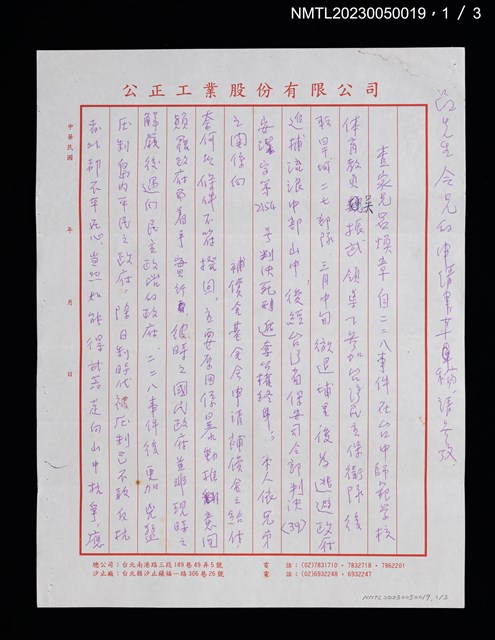 NMTL20230050019，1 / 3
公正工業股份有限公司
中華民國　年　月　日
呂先生令兄的申請書草稿請參攷
查家兄呂煥章自二二八事件在台中師範學校
體育教員吳振武領導下參加台灣民主保衛隊後
轉軍城二七部隊，三月中旬撤退埔里後為逃避政府
追捕流浪中部山中，後經台灣省保安司令部判決（39）
安潔字第2154號判決死刑遂遭槍終身。本人依兄弟
之關係向　補償金基金會申請補償金之給付，
奈何以條件不符撥回，主要原因係呈
頑強政府　彼時之國民政府並非現時之
解嚴後邁向民主政治的政府，二二八事件後更加
压制島內平民之政府，除日制時代被压制已不敢反抗
赤以都不平此心，當然如能得武器走向山中抗爭，應
總公司：台北南港路三段149巷49弄5號　電　話：(02)7831710．7832718．7862201
汐止廠：台北縣汐止鎮福一路306巷26號　電　話：(02)6932248．6932247
NMTL20230050019, 1/3